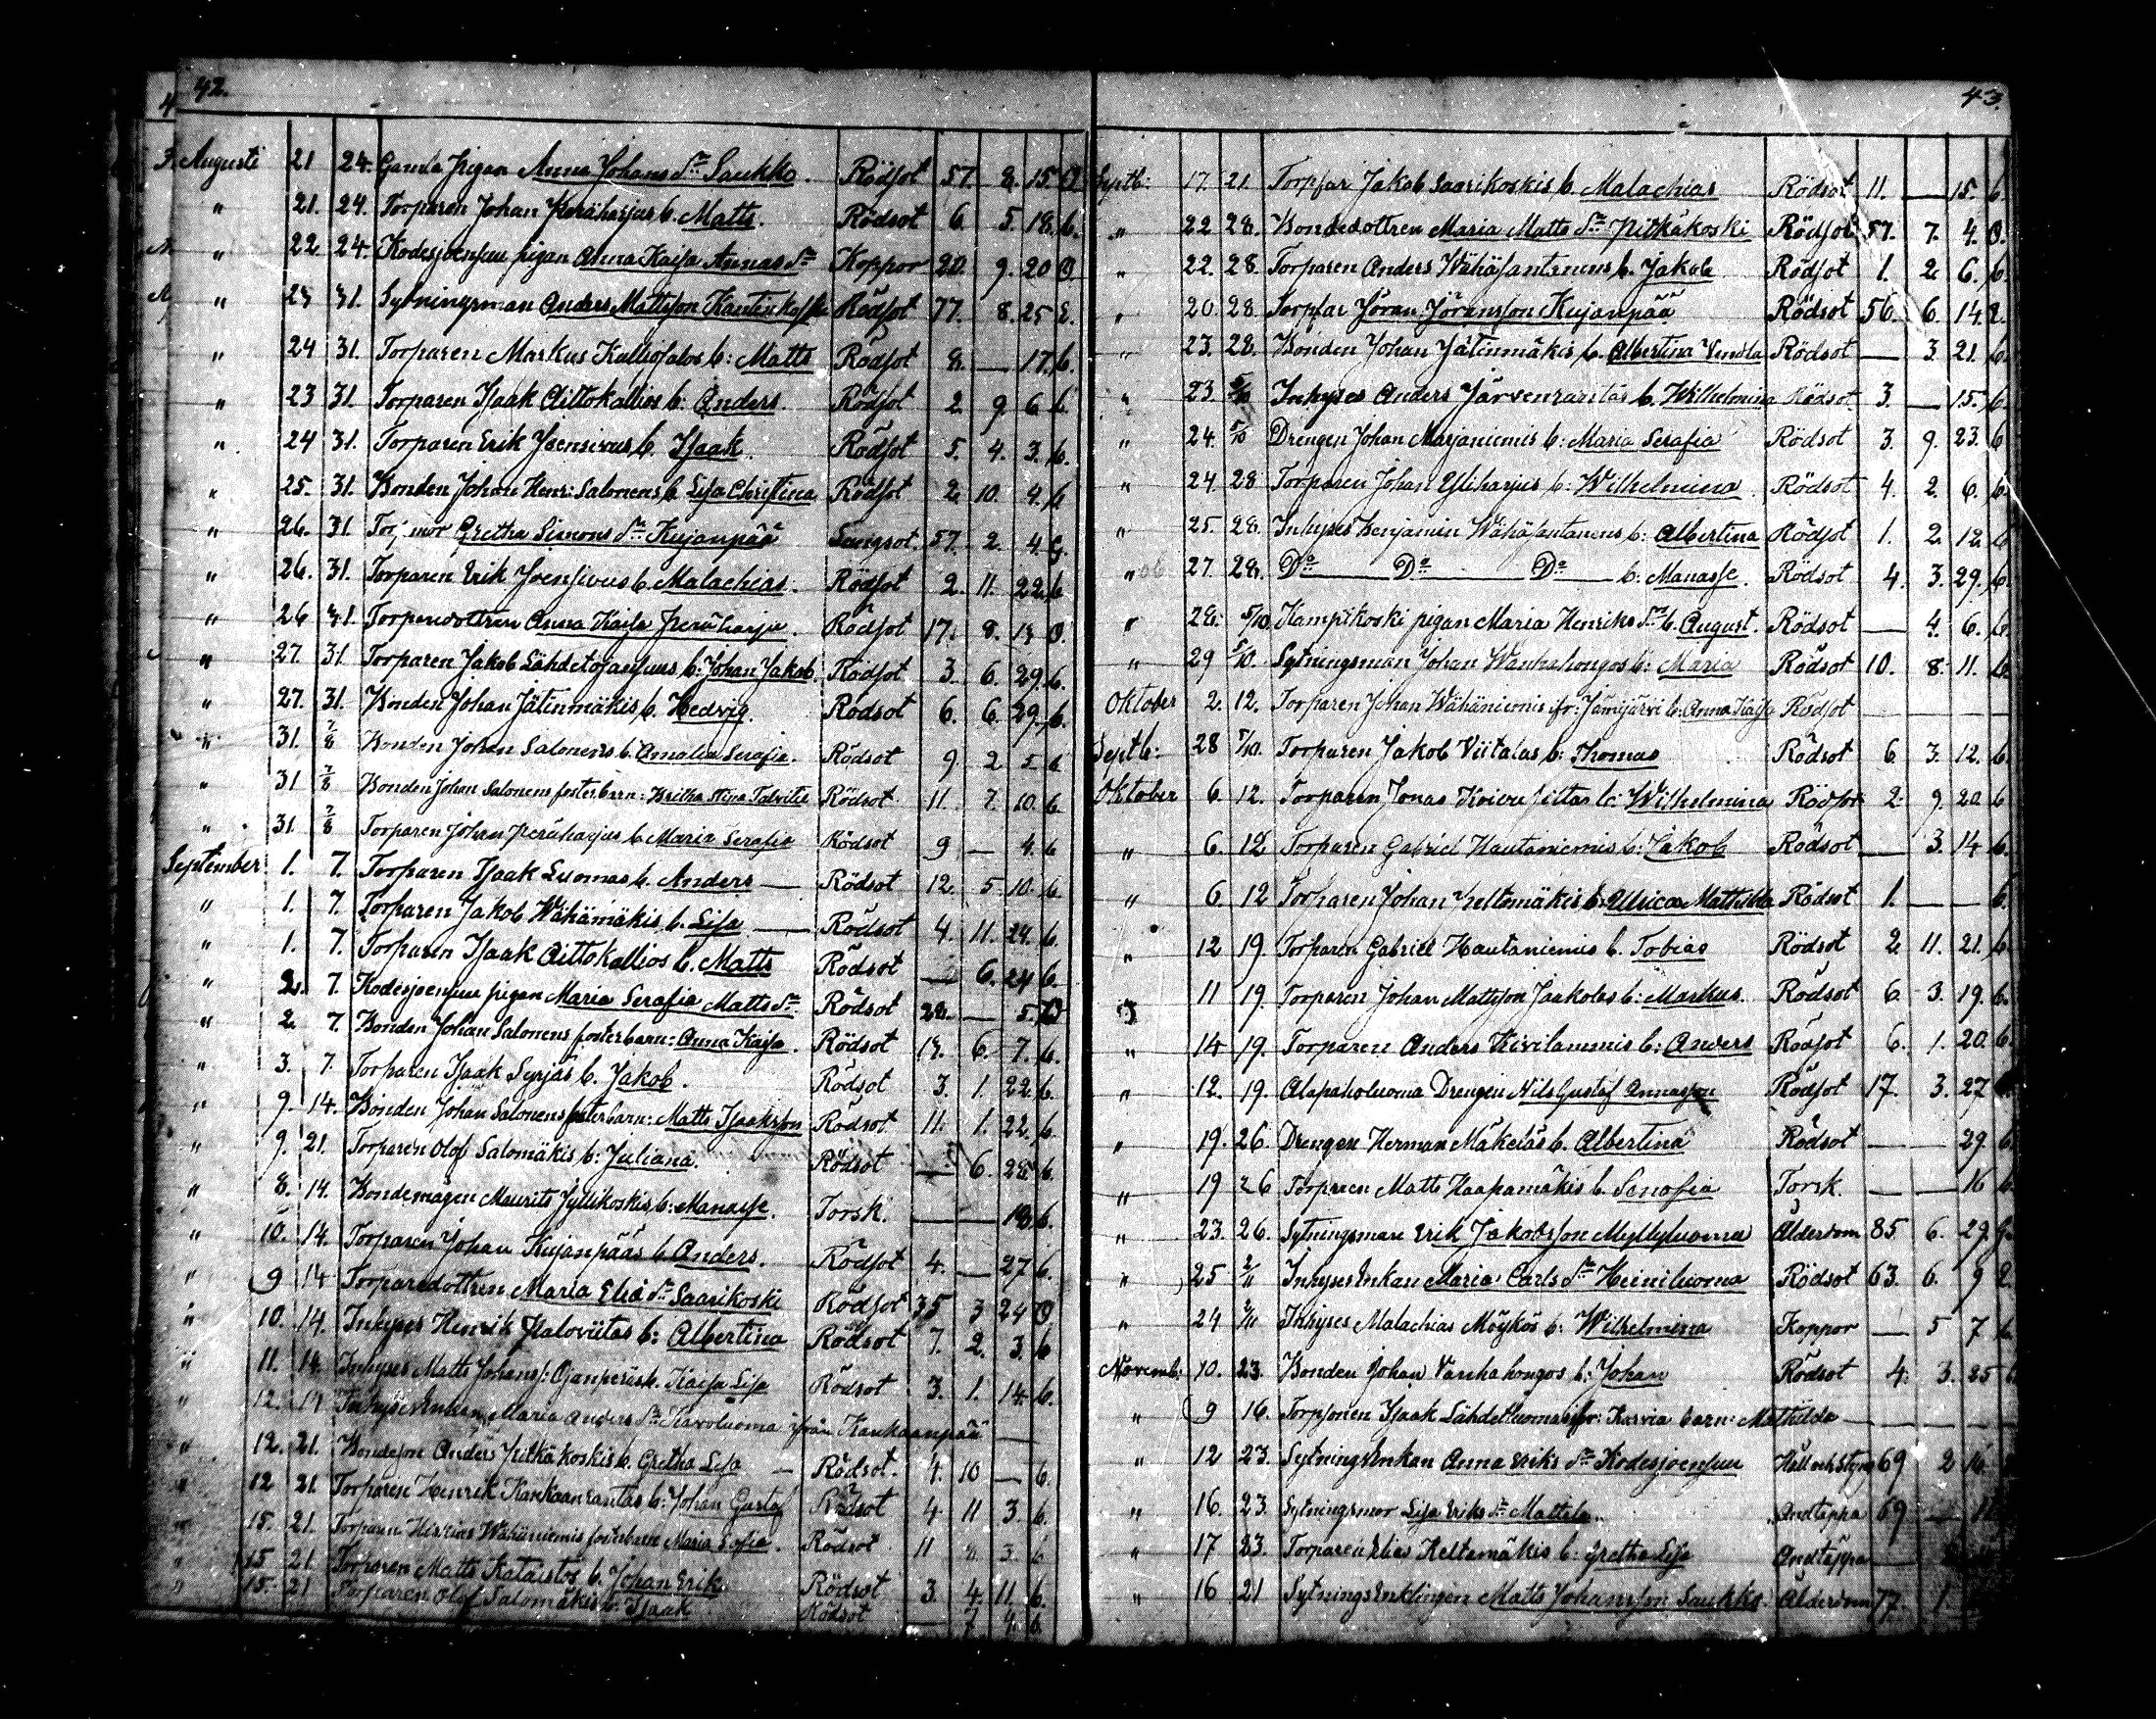 42.
Augusti 21 24. Gamla pigan Anna Johans Dr Saukko. Rödsot 57. 8. 15. O
" 21. 24. Torparen Johan Peräharjus b. Matts. Rödsot 6. 5. 18. b.
" 22 24. Kodesjoensuu pigan Anna Kaisa Annas Dr Koppor 20. 9. 20 O
" 24 31. Sytningsman Anders Mattsson Rödsot 77. 8. 25 E.
" 24 31. Torparen Markus Kalliosalos b: Matts Rödsot 8. — 17. b.
" 23 31. Torparen Isaak Aittokallios b: Anders. Rödsot 2. 9. 6 b.
" 24 31. Torparen Erik Joensivus b. Isaak. Rödsot 5. 4. 3. b.
" 25. 31. Bonden Johan Henr: Salonens b. Lisa Christina Rödsot 2 10. 4. b
" 26. 31. mor Gretha Simons Dr Kujanpää Lungsot. 57. 2. 4. G.
" 26. 31. Torparen Erik Joensivus b. Malachias. Rödsot 2. 11. 22. b
" 26 31. Torparedottren Anna Kaisa Peräharju. Rödsot 17. 8. 13 O.
" 27. 31. Torparen Jakob b: Johan Jakob. Rödsot 3. 6. 29. b.
" 27. 31. Bonden Johan Jätinmäkis b. Hedvig. Rödsot 6. 6. 29. b.
" 31. 7/8 Bonden Johan Salonens b. Amalia Serafia. Rödsot 9 2 5 b
" 31 7/8 Bonden Johan Salonens fosterbarn: Britha Stina Talvitie Rödsot 11 7. 10. b
" 31. 7/8 Torparen Johan Peräharjus b. Maria Serafia Rödsot 9 — 4. b
September 1. 7. Torparen Isaak Luomas b. Anders — Rödsot 12. 5 10. b.
" 1. 7. Torparen Jakob Wähämäkis b. Lisa — Rödsot 4. 11. 24. b.
" 1. 7. Torparen Isaak Aittokallios b. Matts Rödsot — 6. 24 b.
" 2. 7. Kodesjoensuu pigan Maria Serafia Matts Dr Rödsot 22. — 5. O
" 2. 7. Bonden Johan Salonens fosterbarn: Anna Kaisa. Rödsot 13. 6. 7. b.
" 3. 7. Torparen Isaak Syrjäs b. Jakob. Rödsot 3. 1. 22. b.
" 9. 14. Bonden Johan Salonens fosterbarn: Matts Isaaksson Rödsot 11. 1. 22. b.
" 9. 21. Torparen Olof Salomäkis b: Juliana. Rödsot — 6. 28. b.
" 8. 14. Bondemågen Maurits Jyllikoskis b: Manasse. Torsk. — 18 b.
" 10. 14. Torparen Johan Kujanpääs b. Anders. Rödsot 4. — 27 b.
" 9 14 Torparedottren Maria Elia Dr Saarikoski Rödsot 35 3 24 O
" 10. 14. Inhyses Henrik b: Albertina Rödsot 7. 2. 3. b
" 11. 14. Inhyses Matts Johanss: b. Kaisa Lisa Rödsot 3. 1. 14. b.
" 12. 14 Inhyses Enkan Maria Anders Dr Karvoluoma ifrån Kankaanpää —
" 12. 21. Bondeson Anders Pitkäkoskis b. Gretha Lisa — Rödsot. 4. 10 — b.
" 12 21. Torparen Henrik Kankaanrantas b: Johan Gustaf Rödsot 4 11 3. b.
" 15. 21. Torparen Wähäniemis fosterbarn Maria Sofia. Rödsot 11 8. 3. b
" 15 21. Torparen Matts Kataistos b. Johan Erik Rödsot 3. 4. 11. b.
" 15. 21 Torparen Olof Salomäkis b. Isaak Rödsot — 7 9. b.
43.
Septb: 17. 21. Torpfar Jakob Saarikoskis b. Malachias Rödsot 11. — 15. b.
" 22 28. Bondedottren Maria Matts Dr Pitkäkoski Rödsot 57. 7. 4. O.
" 22. 28. Torparen Anders Wähäsantanens b. Jakob Rödsot 1. 2 6. b.
" 20 28 Torpfar Jöran Jöransson Kujanpää Rödsot 56. 6. 14. E.
" 23. 28. Bonden Johan Jätinmäkis b. Albertina Vendla Rödsot — 3. 21. b.
" 23. 5/10 Inhyses Anders Järvenrantas b. Wilhelmina Rödsot. 3. — 15. b.
" 24. 5/10 Drengen Johan Marjaniemis b: Maria Serafia Rödsot 3. 9. 23. b
" 24. 28 Torparen Johan Yliharjus b: Wilhelmina Rödsot 4. 2. 6. b
" 25. 28. Inhyses Benjamin Wähäsantanens b: Albertina Rödsot 1. 2. 12. b
" 27. 28. Do — Do — Do — b: Manasse. Rödsot 4. 3. 29. b.
" 28. 5/10. Kampikoski pigan Maria Henriks Dr b. August. Rödsot — 4. 6. b.
" 29 5/10. Sytningsman Johan Wanhahongos b: Maria Rödsot 10. 8. 11. b.
Oktober 2. 12. Torparen Johan Wähäniemis ifr: Jämijärvi b: Anna Kaisa Rödsot — — —
Septb: 28 5/10. Torparen Jakob Viitalas b: Thomas Rödsot 6 3. 12. b.
Oktober 6. 12. Torparen Jonas b: Wilhelmina Rödsot 2. 9. 20 b
" 6. 12 Torparen Gabriel Hautaniemis b: Jakob Rödsot — 3. 14 b.
" 6. 12 Torparen Johan Keltomäkis b. Ullrica Mathilda Rödsot 1. — — b.
" 12 19. Torparen Gabriel Hautaniemis b. Tobias Rödsot 2 11. 21. b
" 11 19. Torparen Johan Mattsson Jaakolas b: Markus. Rödsot 6. 3. 19. b.
" 14 19. Torparen Anders Kivilammis b: Anders Rödsot 6. 1. 20. b.
" 12. 19. Alapaholuoma Drengen Nils Gustaf Annasson Rödsot 17. 3. 27
" 19. 26 Drengen Herman Mäkeläs b. Albertina Rödsot — 29. b
" 19 26 Torparen Matts Haapamäkis b. Senofia Torsk. — — 16 b.
" 23. 26. Sytningsman Erik Jakobsson Myllyluoma Ålderdom 85. 6. 29.
" 25 2/11 Inhyses Enkan Maria Carls Dr Heiniluoma Rödsot 63. 6. 9 E.
" 24 2/11 Inhyses Malachias Möykös b: Wilhelmina Koppor — 5 7 b.
Novemb: 10. 23. Bonden Johan Vanhahongos b: Johan Rödsot 4. 3. 25
" 9 16. Isaak Lähdeluomas ifr: Karvia barn: Mathilda —
" 12 23. Sytnings Enkan Anna Eriks Dr Kodesjoensuu Håll och Styng 69 2 16
" 16. 23 Sytningsmor Lisa Eriks Dr Mattila. Andtäppa 69 —
" 17 23. Torparen Elias Keltamäkis b: Gretha Lisa Andtäppa —
" 16 21 Matts Johansson Saukko. Ålderdom 77. 1.